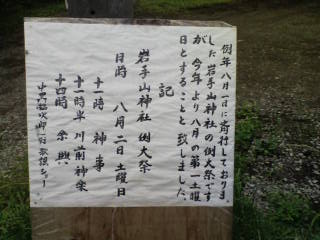 例年八月一日に斎行しておりま
した岩手山神社の例大祭です
が、今年より八月の第一土曜
日とすることと致しました。
記
岩手山神社 例大祭
日時 八月二日 土曜日
十一時 神事
十一時半 川前神楽
十四時 余興
歌謡ショー